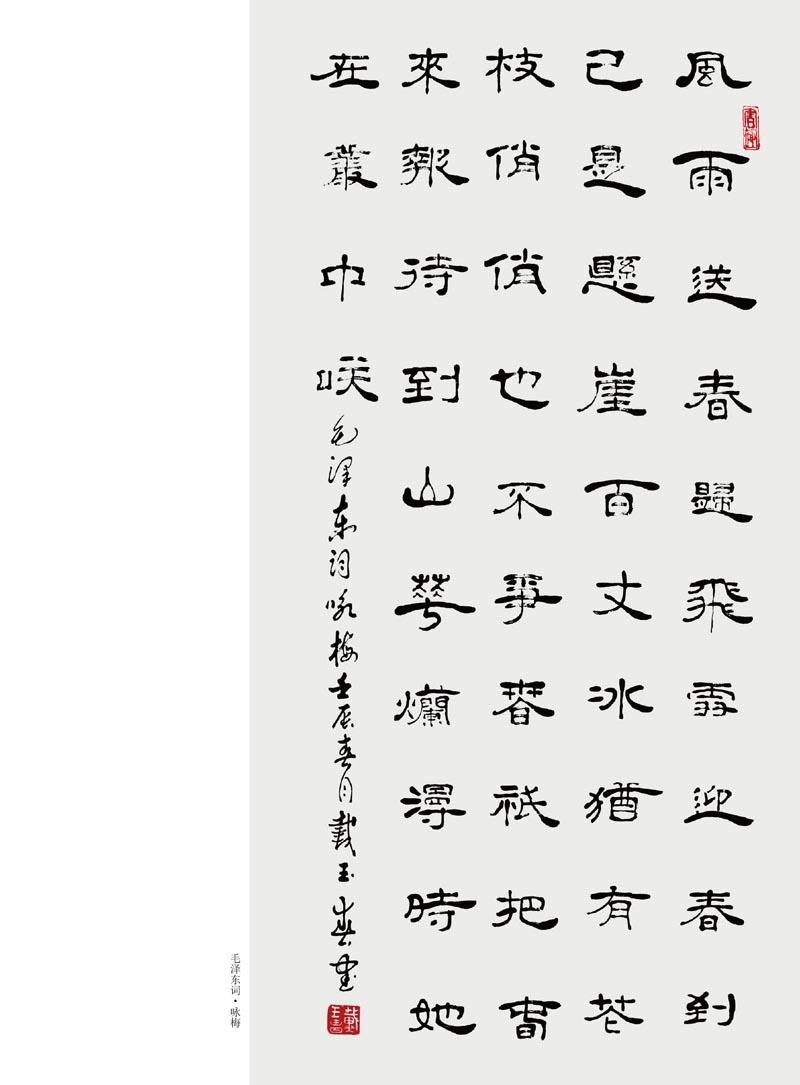 風雨送春歸飛雪迎春到
已是懸崖百丈冰猶有花
枝俏俏也不爭春祇把春
來報待到山華爛漫時她
在叢中咲
毛泽東词咏梅壬辰春月戴玉書
毛泽东词·咏梅